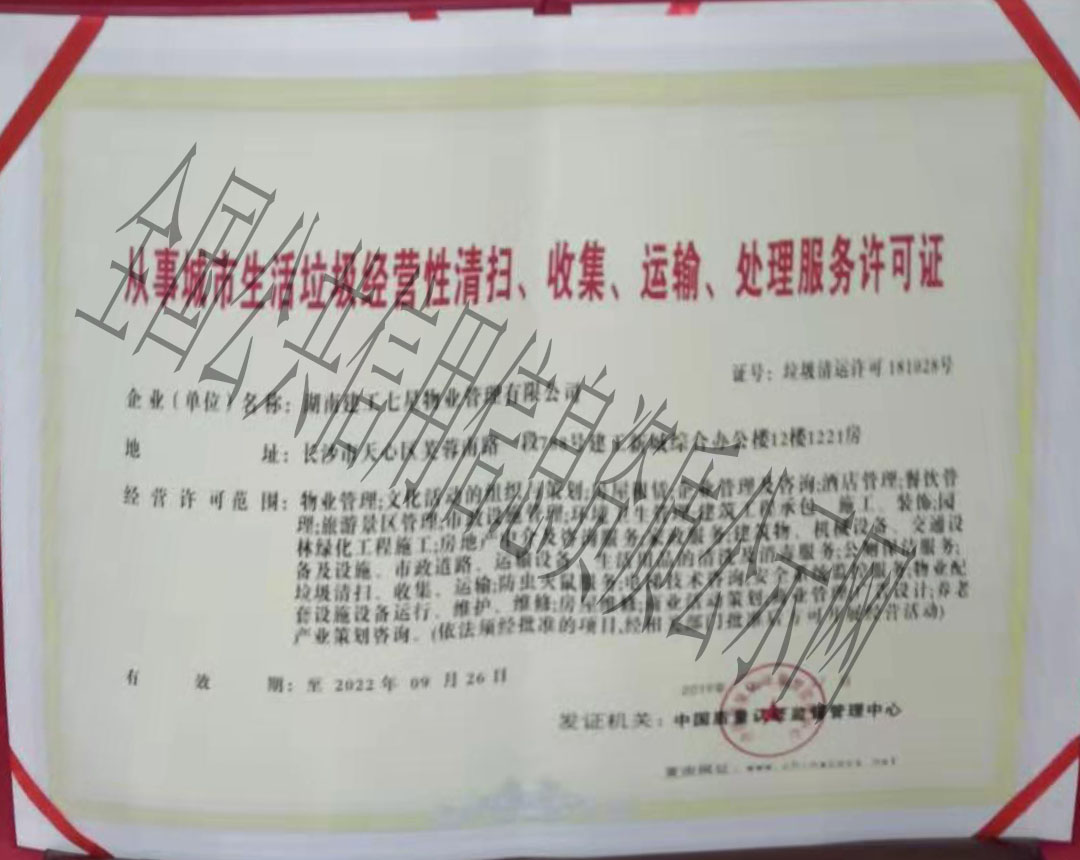 从事城市生活垃圾经营性清扫、收集、运输、处理服务许可证
证号：垃圾清运许可181028号
企业（单位）名称：湖南建工七星物业管理有限公司
地 址：长沙市天心区芙蓉南路一段788号建工新城综合办公楼12楼1221房
经营许可范围：物业管理;文化活动的组织与策划;房屋租赁;企业管理及咨询;酒店管理;餐饮管
理;旅游景区管理;市政设施管理;环境卫生管理;建筑工程承包、施工、装饰;园
林绿化工程施工;房地产中介及咨询服务;家政服务;建筑物、机械设备、交通设
备及设施、市政道路、运输设备、生活用品的清洗及消毒服务;公厕保洁服务;
垃圾清扫、收集、运输;防虫灭鼠服务;电梯技术咨询;安全系统监控服务;物业配
套设施设备运行、维护、维修;房屋维修;商业活动策划;商业管理;设计;养老
产业策划咨询。(依法须经批准的项目,经相关部门批准后方可开展经营活动)
有 效 期：至 2022 年 09 月 26 日
发证机关：中国质量认证监督管理中心
全国公共信用信息资质公示网